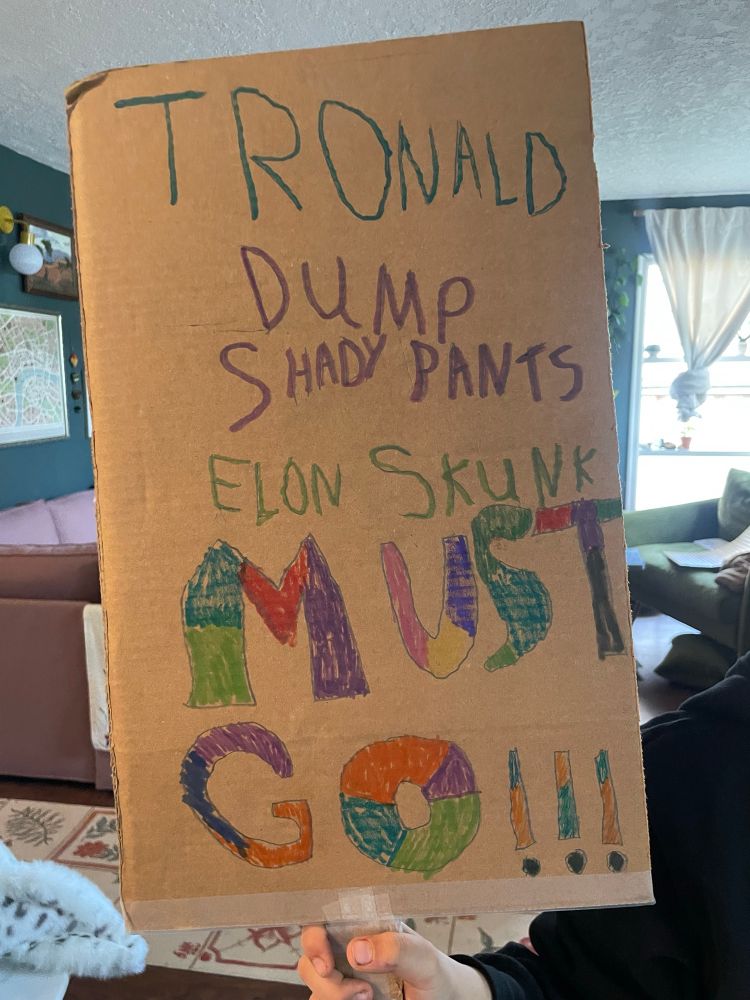 TRONALD
DUMP
SHADY PANTS
ELON SKUNK
MUST
GO!!!